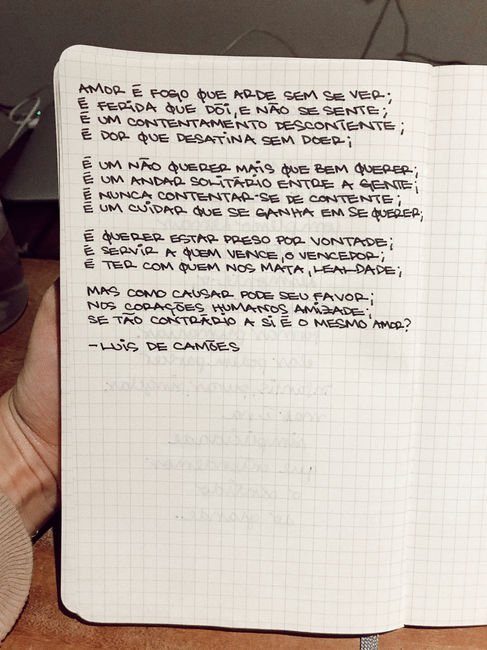 AMOR É FOGO QUE ARDE SEM SE VER;
É FERIDA QUE DÓI, E NÃO SE SENTE;
É UM CONTENTAMENTO DESCONTENTE;
É DOR QUE DESATINA SEM DOER;
É UM NÃO QUERER MAIS QUE BEM QUERER;
É UM ANDAR SOLITÁRIO ENTRE A GENTE;
É NUNCA CONTENTAR-SE DE CONTENTE;
É UM CUIDAR QUE SE GANHA EM SE QUERER;
É QUERER ESTAR PRESO POR VONTADE;
É SERVIR A QUEM VENCE, O VENCEDOR;
É TER COM QUEM NOS MATA, LEALDADE;
MAS COMO CAUSAR PODE SEU FAVOR;
NOS CORAÇÕES HUMANOS AMIZADE;
SE TÃO CONTRÁRIO A SI É O MESMO AMOR?
-LUIS DE CAMÕES